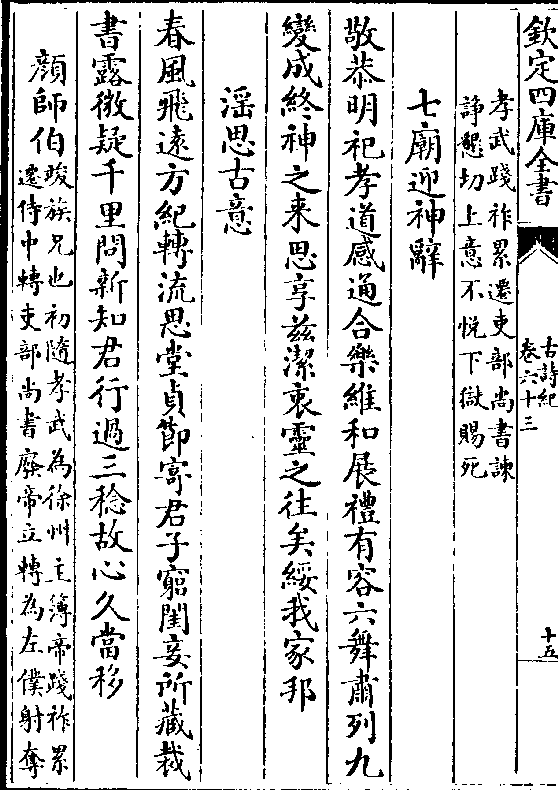 欽定四庫全書
古詩紀
卷六十三
十五
孝武踐祚累遷吏部尚書諫
諍懇切上意不悦下獄賜死
七廟迎神辭
敬恭明祀孝道感通合樂維和展禮有容六舞肅列九
變成終神之来思享兹潔衷靈之往矣綏我家邦
滛思古意
春風飛逺方紀轉流思堂貞節寄君子窮閨妾所藏裁
書露微疑千里問新知君行過三稔故心久當移
顔師伯
竣族兄也初隨孝武為徐州主簿帝踐祚累
遷侍中轉吏部尚書廢帝立轉為左僕射奪